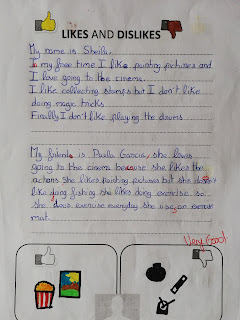 LIKES AND DISLIKES
My name is Sheila.
In my free time I like painting pictures and
I love going to the cinema.
I like collecting stamps but I don't like
doing magic tricks.
Finally I don't like playing the drums
My friend is Paula Garcia, she loves
going to the cinema because she likes the
actions She likes painting pictures but she doesn't
like going fishing she likes doing exercise so,
she does exercise everyday she use an exercise
mat.
Very Good!